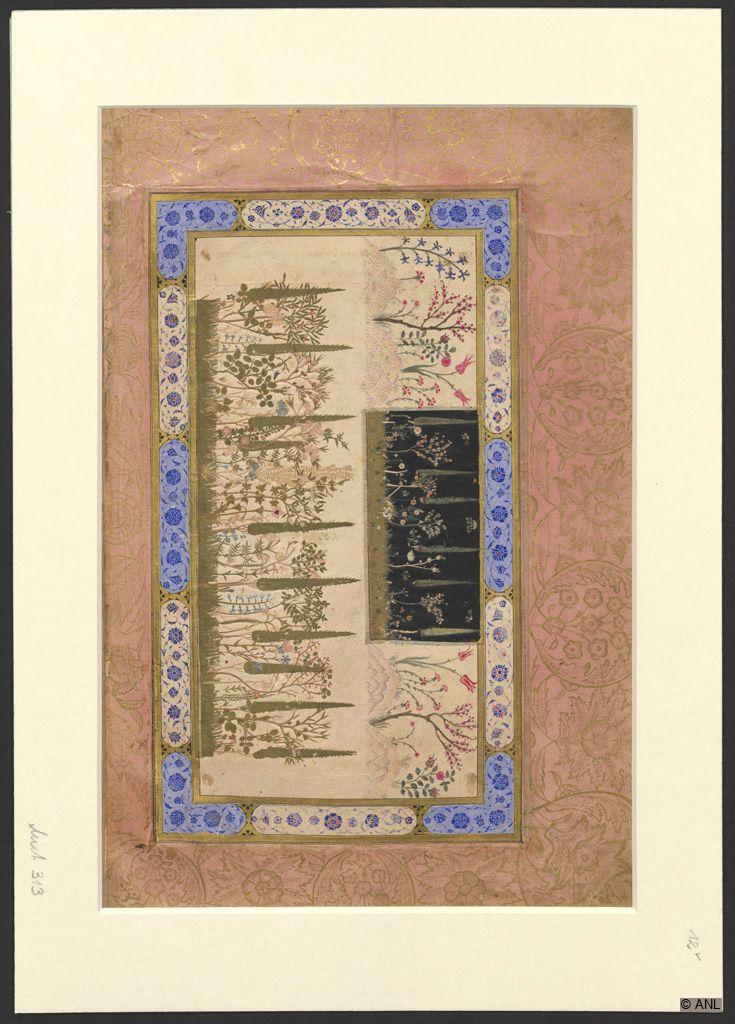 Mixt 313
12v
© ANL